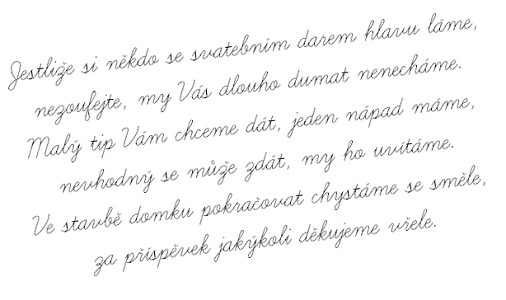 Jestliže si někdo se svatebním darem hlavu láme,
nezoufejte, my Vás dlouho dumat nenecháme.
Malý tip Vám chceme dát, jeden nápad máme,
nevhodný se může zdát, my ho uvítáme.
Ve stavbě domku pokračovat chystáme se směle,
za příspěvek jakýkoli děkujeme vřele.